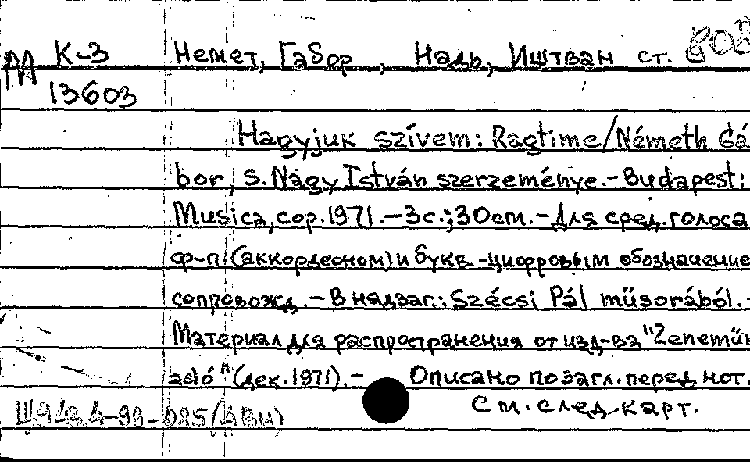 К-3 Немет, Габор , Надь, Иштван ст.
13603
Hagyjuk szívem: Ragtime/Németh Gá
bor, S. Nagy István szerzeménye.-Budapest:
Musica, cop. 1971.-3с.; 30cm.-Для сред. голоса
ф-п (аккордеоном) и букв.-цифровым обозначение
сопровожд.-В надзаг.: Szécsi Pál műsorából.-
Материал для распространения от изд-ва "Zeneműk
iadó" (дек. 1971).- Описано по загл. перед нот.
См. след. карт.